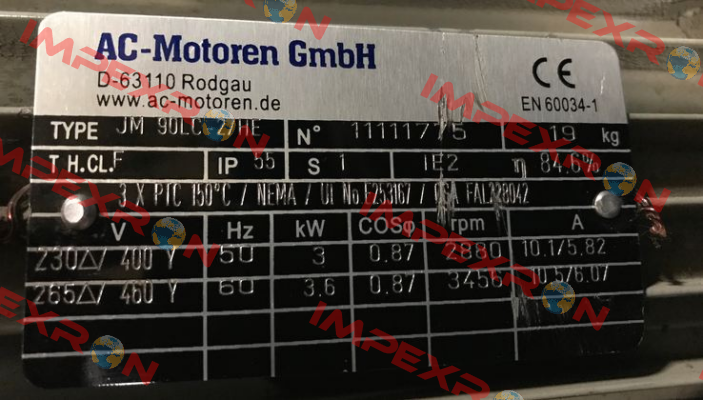 AC-Motoren GmbH
D-63110 Rodgau
www.ac-motoren.de
CE
EN 60034-1
TYPE JM 90LC-2/HE N° 11111775 19 kg
T H.CL.F IP 55 S 1 IE2 η 84.6%
3 X PTC 150°C / NEMA / UI No E253167 / CSA FAL
V Hz kW COSφ rpm A
230Δ/ 400 Y 50 3 0.87 2880 10.1/5.82
265Δ/ 460 Y 60 3.6 0.87 3456 10.5/6.07
IMPEXRON
IMPEXRON
IMPEXRON
IMPEXRON
IMPEXRON